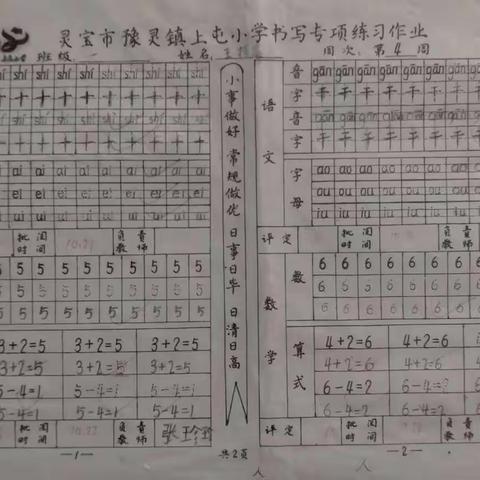 灵宝市豫灵镇上屯小学书写专项练习作业
班级:一 姓名:王 周次:第4周
shí shí shí shí shí shí shí shí
十 十 十 十 十 十 十 十
shí shí shí shí shí shí shí shí
十 十 十 十 十 十 十 十
ai ai ai ai ai ai ai ai
ei ei ei ei ei ei ei ei
ui ui ui ui ui ui ui ui
批阅时间 10.21 负责教师
5 5 5 5 5 5 5 5 5
5 5 5 5 5 5 5 5 5
5 5 5 5 5 5 5 5 5
3+2=5 3+2=5 3+2=5
3+2=5 3+2=5 3+2=5
5-4=1 5-4=1 5-4=1
5-4=1 5-4=1 5-4=1
批阅时间 10.22 负责教师 张玲玲
-1-
小事做好 常规做优 日事日毕 日清日高
共2页
语文
音 gān gān gān gān gān gān gān gān
字 干 干 干 干 干 干 干 干
音 gān gān gān gān gān gān gān gān
字 干 干 干 干 干 干 干 干
字母
ao ao ao ao ao ao ao
ou ou ou ou ou ou ou
iu iu iu iu iu iu iu
评定 批阅时间 负责教师
数学
数
6 6 6 6 6 6 6 6
6 6 6 6 6 6 6 6
6 6 6 6 6 6 6 6
算式
4+2=6 4+2=6
4+2=6 4+2=6
6-4=2 6-4=2
6-4=2 6-4=2
评定 批阅时间 负责教师
-2-
人 人